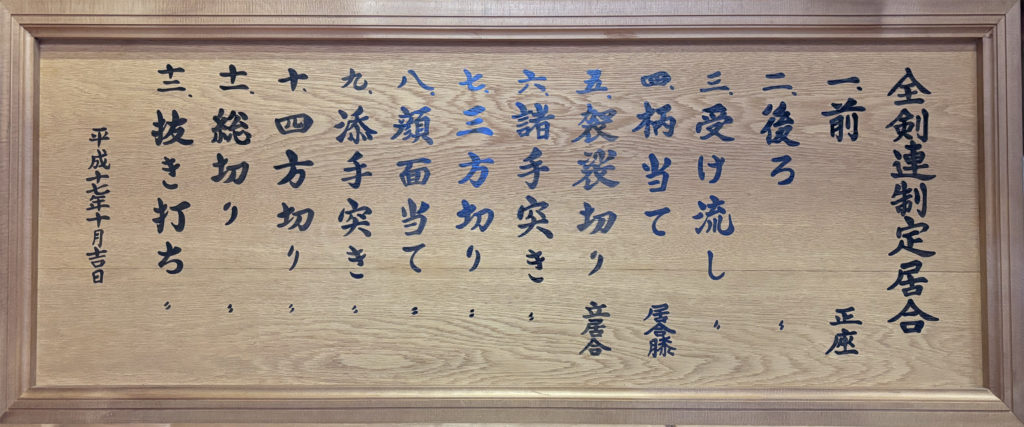 全剣連制定居合
一、前 正座
二、後ろ 〃
三、受け流し 〃
四、柄当て 居合膝
五、袈裟切り 立居合
六、諸手突き 〃
七、三方切り 〃
八、顔面当て 〃
九、添手突き 〃
十、四方切り 〃
十一、総切り 〃
十二、抜き打ち 〃
平成十七年十月吉日